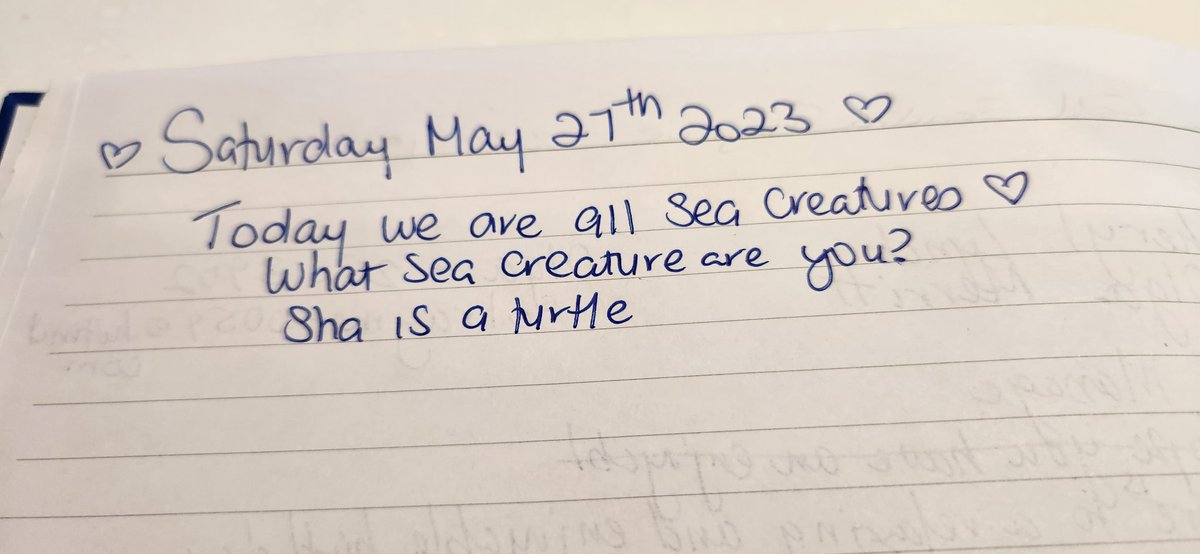 ♡ Saturday May 27th 2023 ♡
Today we are all Sea Creatures ♡
What Sea Creature are you?
Sha is a turtle